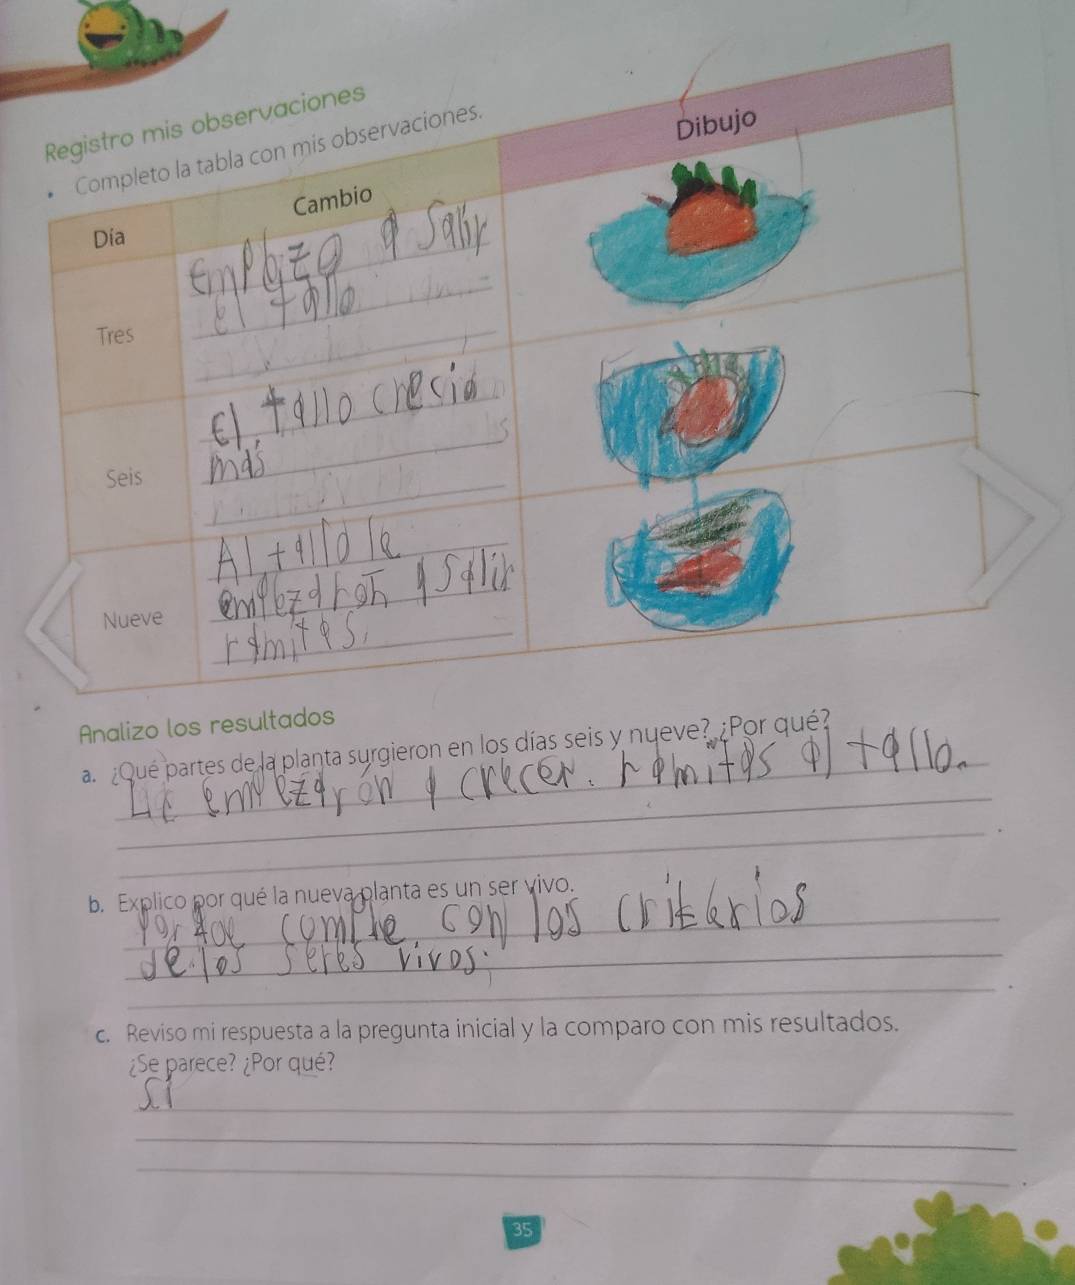 Registro mis observaciones
• Completo la tabla con mis observaciones.
Día
Cambio
Dibujo
Tres
Empbzo a Salir
el tallo
Seis
El tallo crecio
más
Nueve
Al tallo le
empezaron a salir
ramitas.
Analizo los resultados
a. ¿Qué partes de la planta surgieron en los días seis y nueve? ¿Por qué?
Le empezarón a crecer. ramitas al tallo.
b. Explico por qué la nueva planta es un ser vivo.
comple con los criterios
de los seres vivos.
c. Reviso mi respuesta a la pregunta inicial y la comparo con mis resultados.
¿Se parece? ¿Por qué?
Si
35